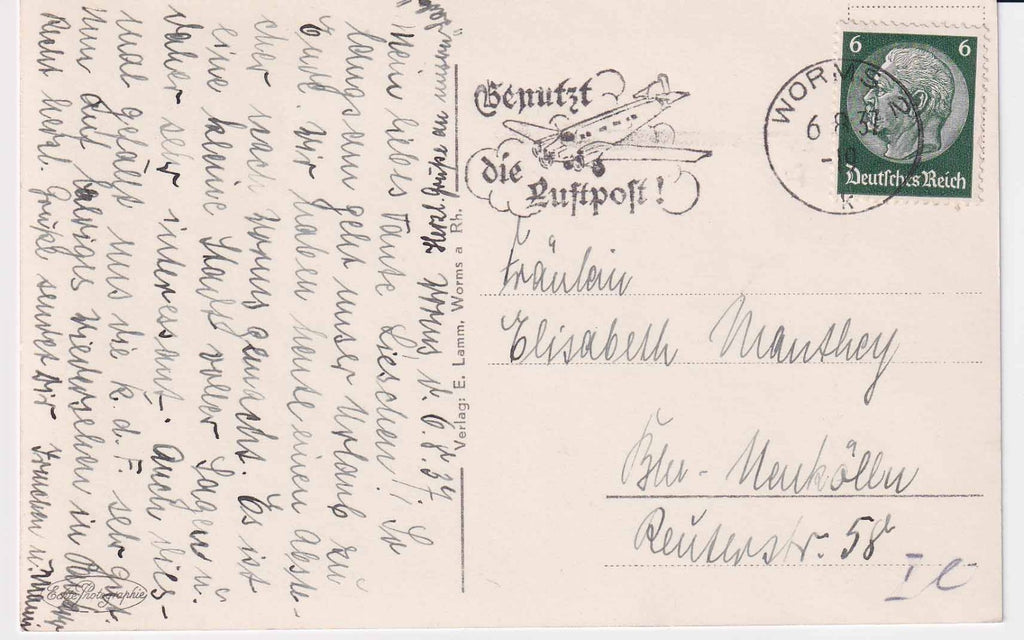 Worms d. 6.8.37
Mein liebes Tante Lieschen! So
langsam geht unser Urlaub zu
Ende. Wir haben heute einen Abste-
cher nach Worms gemacht. Es ist
eine kleine Stadt voller Sagen u.
daher sehr interessant. Auch dies-
mal gefällt uns die K.d.F. sehr gut.
Nun auf baldiges Wiedersehen in
Recht herzl. Grüße sendet Dir Trudchen u.
Herzl. Grüße an
Verlag: E. Lamm, Worms a Rh.
Echte Photographie
Benutzt
die
Luftpost!
WORMS
6.8.37
k
6 6
Deutsches Reich
Fräulein
Elisabeth Manthey
Bln-Neukölln
Reuterstr. 58
I